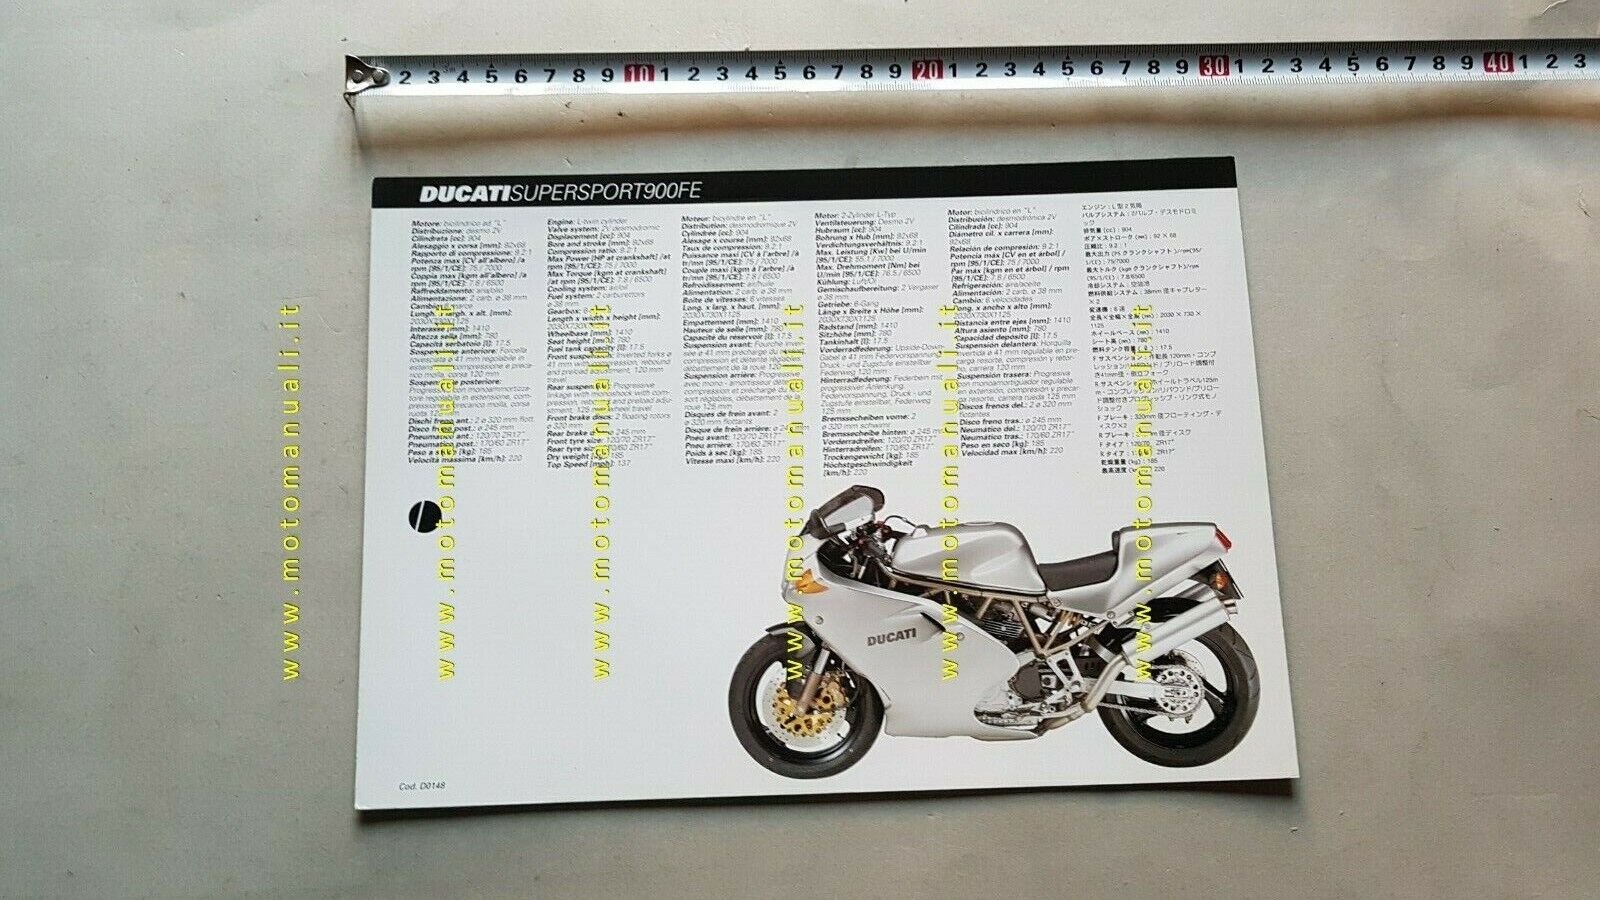 2 3 4 5 6 7 8 9 10 1 2 3 4 5 6 7 8 9 20 1 2 3 4 5 6 7 8 9 30 1 2 3 4 5 6 7 8 9 40 1 2 3
DUCATISUPERSPORT900FE
Motore: bicilindrico ad "L"
Distribuzione: desmo 2V
Cilindrata [cc]: 904
Alesaggio x corsa [mm]: 92x68
Rapporto di compressione: 9.2:1
Potenza max [CV all'albero] /a
rpm [95/1/CE]: 75 / 7000
Coppia max [kgm all'albero] /a
rpm [95/1/CE]: 7.8 / 6500
Raffreddamento: aria/olio
Alimentazione: 2 carb. ø 38 mm
Cambio: 6 marce
Lungh. x largh. x alt. [mm]:
2030X730X1125
Interasse [mm]: 1410
Altezza sella [mm]: 780
Capacità serbatoio [l]: 17.5
Sospensione anteriore: Forcella
rovesciata ø 41 mm regolabile in
estensione, compressione e preca-
rico molla, corsa 120 mm
Sospensione posteriore:
corsa
ruota 125 mm
Dischi freno ant.: 2 ø 320 mm flott.
Disco freno post.: ø 245 mm
Pneumatico ant.: 120/70 ZR17"
Pneumatico post.: 170/60 ZR17"
Peso a secco [kg]: 185
Velocità massima [km/h]: 220
Engine: L-twin cylinder
Valve system: 2V desmodromic
Displacement [cc]: 904
Bore and stroke [mm]: 92x68
Compression ratio: 9.2:1
Max Power [HP at crankshaft] /at
rpm [95/1/CE]: 75 / 7000
Max Torque [kgm at crankshaft]
/at rpm [95/1/CE]: 7.8 / 6500
Cooling system: air/oil
Fuel system: 2 carburettors
ø 38 mm
Gearbox: 6 speed
Length x width x height [mm]:
2030X730X1125
Wheelbase [mm]: 1410
Seat height [mm]: 780
Fuel tank capacity [l]: 17.5
Front suspension: Inverted forks ø
41 mm with compression, rebound
and preload adjustment, 120 mm
travel
Rear suspension: Progressive
linkage with monoshock with com-
pression, rebound and preload adju-
stment, 125 mm wheel travel
Front brake discs: 2 floating rotors
ø 320 mm
Rear brake disc: ø 245 mm
Front tyre size: 120/70 ZR17"
Rear tyre size: 170/60 ZR17"
Dry weight [kg]: 185
Top Speed [mph]: 137
Moteur: bicylindre en "L"
Distribution: desmodromique 2V
Cylindrée [cc]: 904
Alésage x course [mm]: 92x68
Taux de compression: 9.2:1
Puissance maxi [CV à l'arbre] /à
tr/mn [95/1/CE]: 75 / 7000
Couple maxi [kgm à l'arbre] /à
tr/mn [95/1/CE]: 7.8 / 6500
Refroidissement: air/huile
Alimentation: 2 carb. ø 38 mm
Boite de vitesses: 6 vitesses
Long. x larg. x haut. [mm]:
2030X730X1125
Empattement [mm]: 1410
Hauteur de selle [mm]: 780
Capacité du reservoir [l]: 17.5
Suspension avant: Fourche inver-
sée ø 41 mm
de la roue 120 mm
Suspension arrière: Progressive
avec mono - amortisseur
roue 125 mm
Disques de frein avant: 2
ø 320 mm flottants
Disque de frein arrière: ø 245 mm
Pneu avant: 120/70 ZR17"
Pneu arrière: 170/60 ZR17"
Poids à sec [kg]: 185
Vitesse maxi [km/h]: 220
Motor: 2-Zylinder L-Typ
Ventilsteuerung: Desmo 2V
Hubraum [cc]: 904
Bohrung x Hub [mm]: 92x68
Verdichtungsverhältnis: 9.2:1
Max. Leistung [Kw] bei U/min
[95/1/CE]: 55.1 / 7000
Max. Drehmoment [Nm] bei
U/min [95/1/CE]: 76.5 / 6500
Kühlung: Luft/Öl
Gemischaufbereitung: 2 Vergaser
ø 38 mm
Getriebe: 6-Gang
Länge x Breite x Höhe [mm]:
2030X730X1125
Radstand [mm]: 1410
Sitzhöhe [mm]: 780
Tankinhalt [l]: 17.5
Vorderradfederung: Upside-Down-
Gabel ø 41 mm Federvorspannung,
Druck - und Zugstufe einstellbar,
Federweg 120 mm
Hinterradfederung: Federbein mit
progressiver Anlenkung,
Federvorspannung, Druck - und
Zugstufe einstellbar, Federweg
125 mm
Bremsscheiben vorne: 2
ø 320 mm schwimd
Bremsscheibe hinten: ø 245 mm
Vorderradreifen: 120/70 ZR17"
Hinterradreifen: 170/60 ZR17"
Trockengewicht [kg]: 185
Höchstgeschwindigkeit
[km/h]: 220
Motor: bicilíndrico en "L"
Distribución: desmodrómica 2V
Cilindrada [cc]: 904
Diámetro cil. x carrera [mm]:
92x68
Relación de compresión: 9.2:1
Potencia max [CV en et árbol] /
rpm [95/1/CE]: 75 / 7000
Par max [kgm en et árbol] /
rpm [95/1/CE]: 7.8 / 6500
Refrigeración: aire/aceite
Alimentación: 2 carb. ø 38 mm
Cambio: 6 velocidades
Long. x ancho x alto [mm]:
2030X730X1125
Distancia entre ejes [mm]: 1410
Altura asiento [mm]: 780
Capacidad deposito [l]: 17.5
Suspensión delantera: Horquilla
invertida ø 41 mm regulable en pre-
carga resorte, compresión y retor-
no, carrera 120 mm
Suspensión trasera: Progresiva
con monoamortiguador regulable
en extensión, compresión y precar-
ga resorte, carrera rueda 125 mm
Discos frenos del.: 2 ø 320 mm
flotantes
Disco freno tras.: ø 245 mm
Neumático del.: 120/70 ZR17"
Neumático tras.: 170/60 ZR17"
Peso en seco [kg]: 185
Velocidad max [km/h]: 220
エンジン：L型2気筒
バルブシステム：2バルブ・デスモドロミ
ック
排気量 (cc)：904
ボア×ストローク (mm)：92 × 68
圧縮比：9.2：1
最大出力 (PS クランクシャフト)/rpm(95/
1/CE)：75/7000
最大トルク (kgm クランクシャフト)/rpm
(95/1/CE)：7.8/6500
冷却システム：空油冷
燃料供給システム：38mm 径キャブレター
×2
変速機：6速
全長×全幅×全高 (mm)：2030 × 730 ×
1125
ホイールベース (mm)：1410
シート高 (mm)：780
燃料タンク容量 (l)：17.5
Fタイア：120/70 ZR17"
乾燥重量 (kg)：185
最高速度 (km/h)：220
DUCATI
Cod. D0148
www.motomanuali.it
www.motomanuali.it
www.motomanuali.it
www.motomanuali.it
www.motomanuali.it
www.motomanuali.it